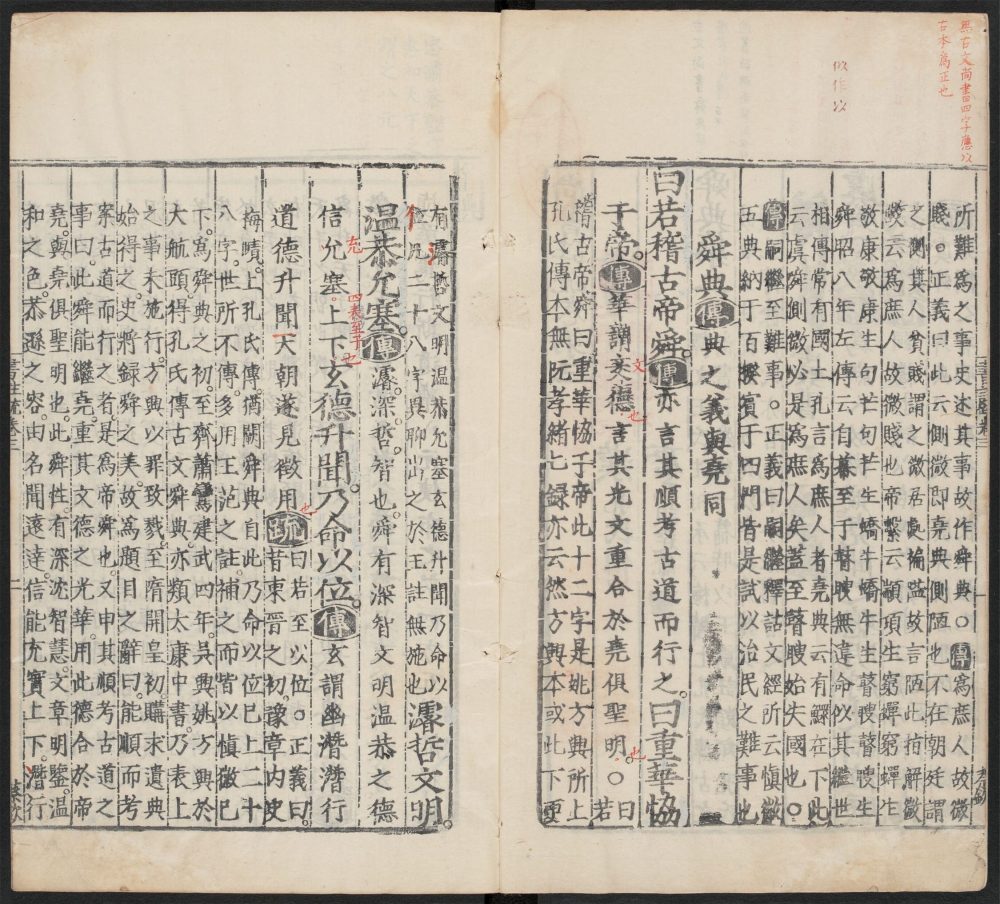 無古文尚書四字應以
古本爲正也
似作以
所難爲之事史述其事故作舜典〇傳爲庶人故微
賤。正義曰此云側微即堯典側陋也不在朝廷謂
之側其人貧賤謂之微居處褊隘故言陋此指解微
故云爲庶人故微賤也帝繫云顓頊生窮蟬窮蟬生
敬康敬康生句芒句芒生蟜牛蟜牛生瞽瞍瞽瞍生
舜昭八年左傳云自幕至于瞽瞍無違命似其繼世
相傳常有國土孔言爲庶人者堯典云有鰥在下此
云虞舜側微必是爲庶人矣蓋至瞽瞍始失國也〇
傳嗣繼至難事。正義曰嗣繼釋詁文經所云愼徽
五典納于百揆賓于四門皆是試以治民之難事也
舜典傳典之義與堯同
曰若稽古帝舜。傳亦言其順考古道而行之。曰重華協
于帝。傳華謂文德。言其光文重合於堯俱聖明。〇曰若
稽古帝舜曰重華協于帝此十二字是姚方興所上
孔氏傳本無阮孝緒七錄亦云然方興本或此下更
文
也
也
有濬哲文明温恭允塞玄德升聞乃命以
位凡二十八字異聊出之於王註無施也濬哲文明
温恭允塞。傳濬。深。哲。智也。舜有深智文明温恭之德
信允塞。上下玄德升聞。乃命以位。傳玄謂幽潛潛行
道德升聞天朝遂見徵用疏曰若至以位。正義曰
昔東晉之初。豫章内史
梅賾。上孔氏傳猶闕舜典自此。乃命以位已上二十
八字。世所不傳。多用王范之註補之而皆以愼徽已
下。爲舜典之初。至齊蕭鸞建武四年。吳興姚方興於
大航頭得孔氏傳古文舜典亦類太康中書。乃表上
之。事未施行。方興以罪致戮至隋開皇初。購求遺典
始得之。史將錄舜之美。故爲題目之辭曰。能順而考
案古道而行之者是爲帝舜也。又申其順考古道之
事曰。此舜能繼堯。重其文德之光華。用此德合於帝
堯。與堯俱聖明也。此舜性。有深沈智慧。文章明鑒。温
和之色。恭遜之容。由名聞遠達。信能充實上下。潛行
充
四表至于也
也